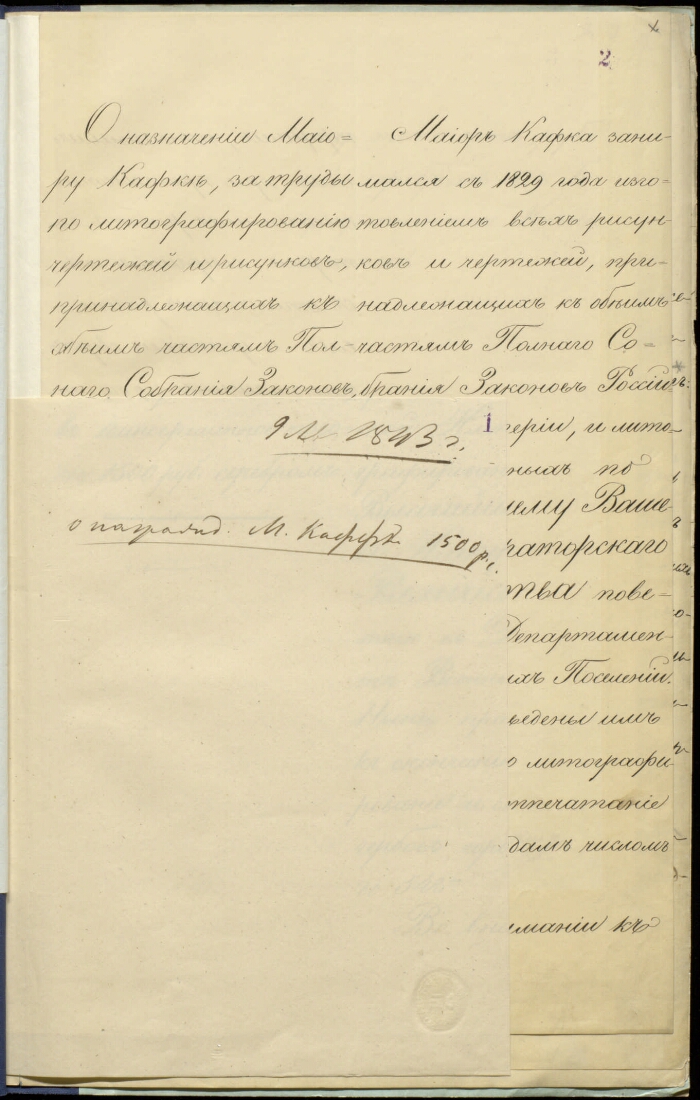 2
О назначеніи Маіо=
ру Кафкѣ, за труды
по литографированію
чертежей и рисунковъ,
принадлежащихъ къ
объимъ частямъ Пол-
наго Собранія Законовъ,
Маіоръ Кафка зани-
мался съ 1829 года изго-
товленіемъ всѣхъ рисун-
ковъ и чертежей, при-
надлежащихъ къ объимъ
частямъ Полнаго Со=
бранія Законовъ Россій
еріи, и лито-
ныхъ по
ему Ваше
раторскаго
тва пове=
Департамен-
ихъ Поселеній.
ведены имъ
о литографи
тпечатаніе
дамъ числомъ
Въ вниманіи къ
1
1843 г.
о награжд. М. Кафкѣ 1500 р. с.